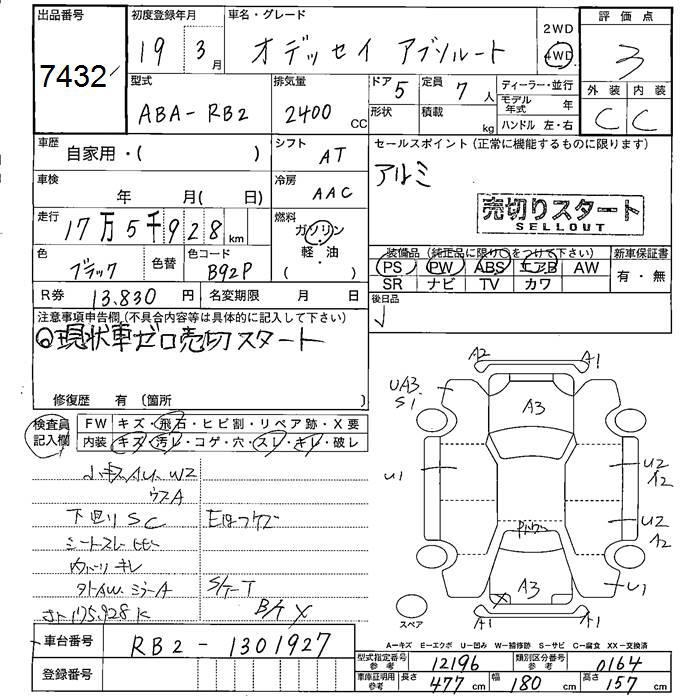 出品番号
7432
初度登録年月
19 3月
車名・グレード
オデッセイ アブソルート
2WD
4WD
評価点
3
外装 内装
C C
型式
ABA-RB2
排気量
2400 CC
ドア 5
形状
定員 7人
積載 kg
ディーラー・並行
モデル年式 年
ハンドル 左・右
車歴
自家用・( )
シフト
AT
セールスポイント(正常に機能するものに限ります)
アルミ
売切りスタート
SELLOUT
車検
年 月( 日)
冷房
AAC
走行
17万5千928km
燃料
ガソリン
・軽油・
( )
色
ブラック
色替
色コード
B92P
装備品(純正品に限り○をつけて下さい)
PS PW ABS エアB AW
SR ナビ TV カワ
新車保証書
有・無
R券 13,830円
名変期限 月 日
後日品
注意事項申告欄(不具合内容等は具体的に記入して下さい)
◎現状車ゼロ売切スタート
修復歴 有(箇所 )
検査員記入欄
FW キズ・飛石・ヒビ割・リペア跡・X要
内装 キズ・汚レ・コゲ・穴・スレ・キレ・破レ
下回りSC
A2 A1
UA3
S1
A3
U1
U2
U2
A3
U1
A1 A1
スペア
A=キズ E=エクボ U=凹み W=補修跡 S=サビ C=腐食 XX=交換済
車台番号 RB2-1301927
登録番号
型式指定番号参考 12196
類別区分番号参考 0164
車庫証明用参考 長さ 477cm 幅 180cm 高さ 157cm